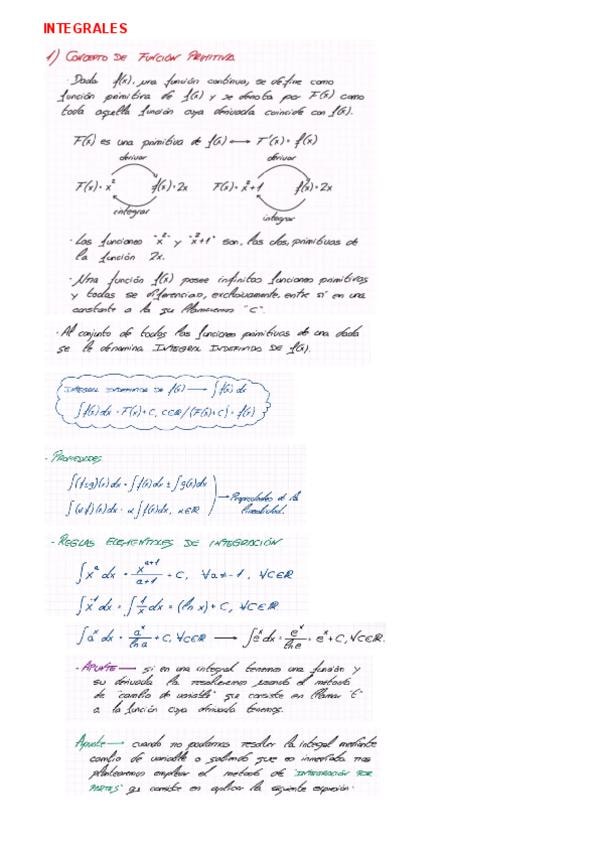 INTEGRALES
1) CONCEPTO DE FUNCIÓN PRIMITIVA
· Dada f(x), una función continua, se define como
función primitiva de f(x) y se denota por F(x) como
toda aquella función cuya derivada coincide con f(x).
F(x) es una primitiva de f(x) ⟷ F'(x) = f(x)
derivar derivar
F(x) = x² f(x) = 2x F(x) = x²+1 f(x) = 2x
integrar integrar
· Las funciones "x²" y "x²+1" son, las dos, primitivas de
la función 2x.
· Una función f(x) posee infinitas funciones primitivas
y todas se diferencian, exclusivamente, entre sí en una
constante a la que llamaremos "C".
· Al conjunto de todas las funciones primitivas de una dada
se le denomina INTEGRAL INDEFINIDA DE f(x).
INTEGRAL INDEFINIDA DE f(x) ⟶ ∫f(x) dx
∫f(x)dx = F(x) + C, C∈ℝ / (F(x)+C)' = f(x)
· PROPIEDADES
∫(f±g)(x)dx = ∫f(x)dx ± ∫g(x)dx
∫(α·f)(x)dx = α∫f(x)dx, α∈ℝ
⟶ Propiedades de la
linealidad.
· REGLAS ELEMENTALES DE INTEGRACIÓN
∫xᵃ dx = xᵃ⁺¹/(a+1) + C, ∀a≠-1, ∀C∈ℝ
∫x⁻¹ dx = ∫1/x dx = (ln x) + C, ∀C∈ℝ
∫aˣ dx = aˣ/ln a + C, ∀C∈ℝ ⟶ ∫eˣ dx = eˣ/ln e = eˣ + C, ∀C∈ℝ.
· APUNTE ⟶ si en una integral tenemos una función y
su derivada la resolveremos usando el método
de "cambio de variable" que consiste en llamar "t"
a la función cuya derivada tenemos.
Apunte ⟶ cuando no podamos resolver la integral mediante
cambio de variable o sabiendo que es inmediata nos
plantearemos emplear el método de "INTEGRACIÓN POR
PARTES" que consiste en aplicar la siguiente expresión: